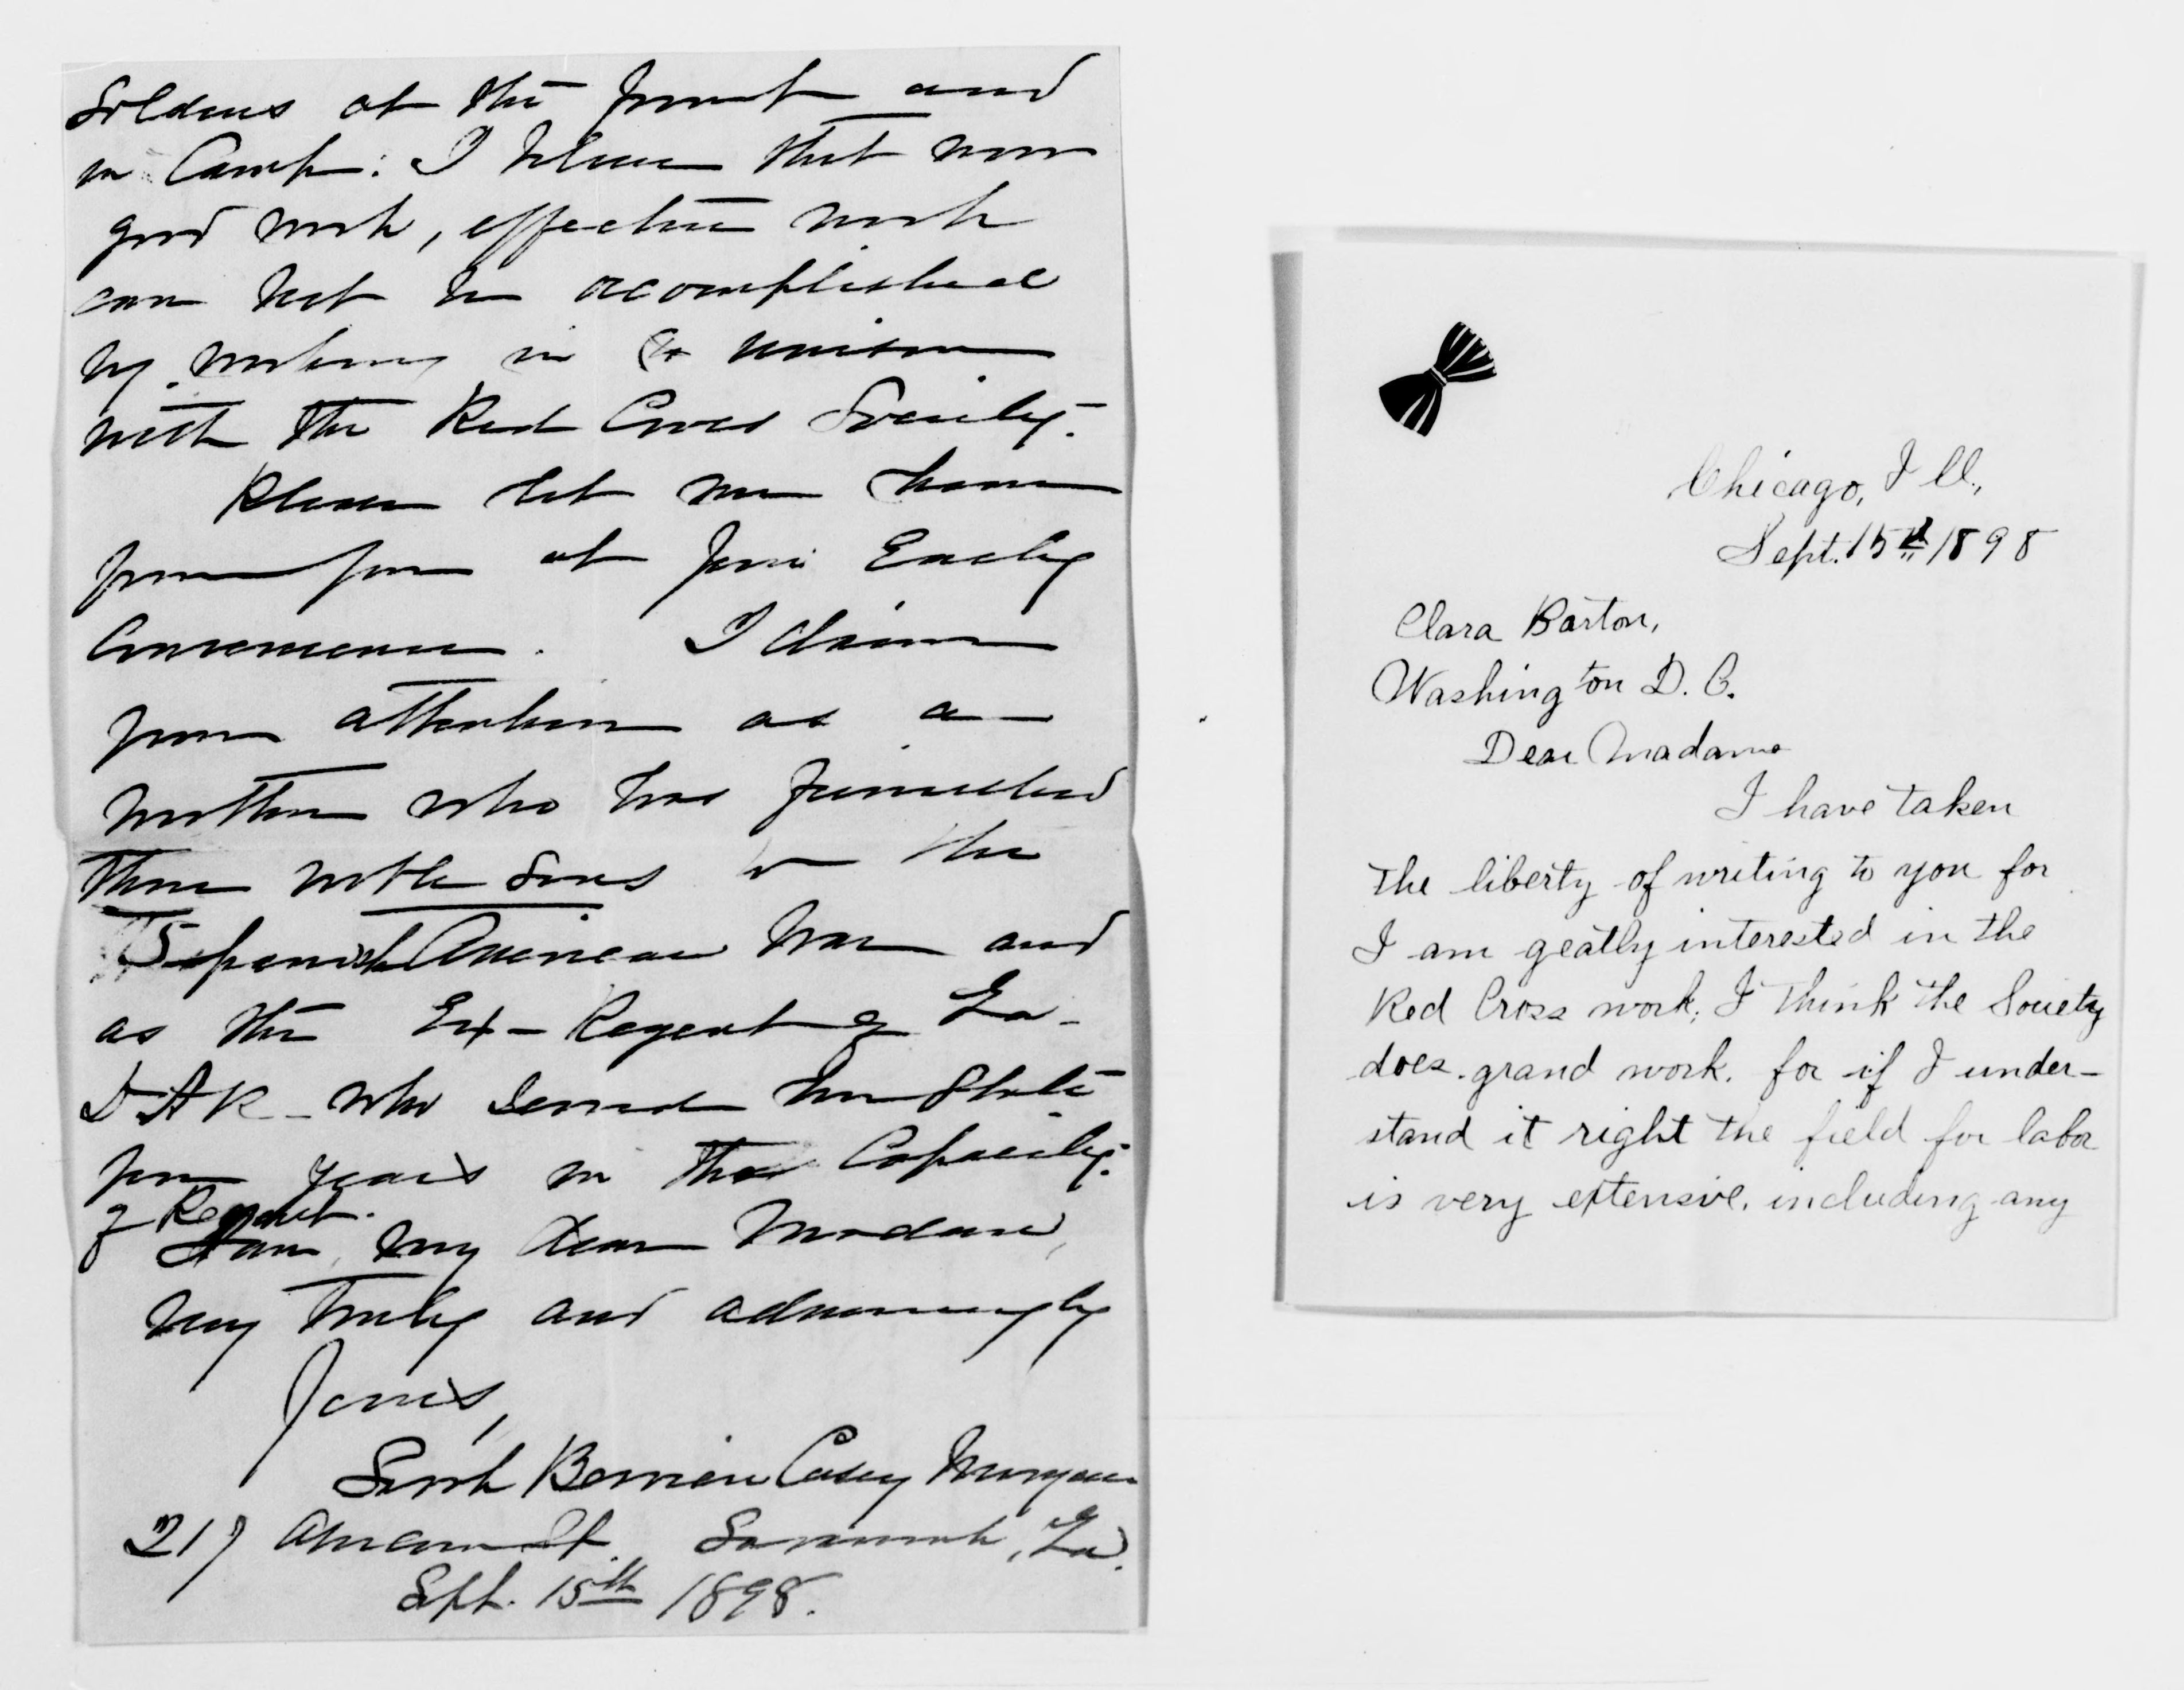 Soldiers at the front and
in Camp: I believe that more
good work, effective work
can not be accomplished
by working in unison
with the Red Cross Society.
Please let me hear
from you at your Early
Convenience. I claim
your attention as a
mother who has furnished
three noble Sons to the
Spanish American War and
as the Ex-Regent of Ga-
DAR- who served her State
four years in that Capacity.
of Regent.
I am, my dear Madam,
Very Truly and admiringly
Yours,
Sarah Berrien Casey Morgan
217 St. Savannah, Ga.
Sept. 15th 1898.
Chicago, Ill.,
Sept. 15th 1898
Clara Barton,
Washington D. C.
Dear Madame
I have taken
the liberty of writing to you for
I am geatly interested in the
Red Cross work; I think the Society
does grand work. for if I under-
stand it right the field for labor
is very extensive. including any